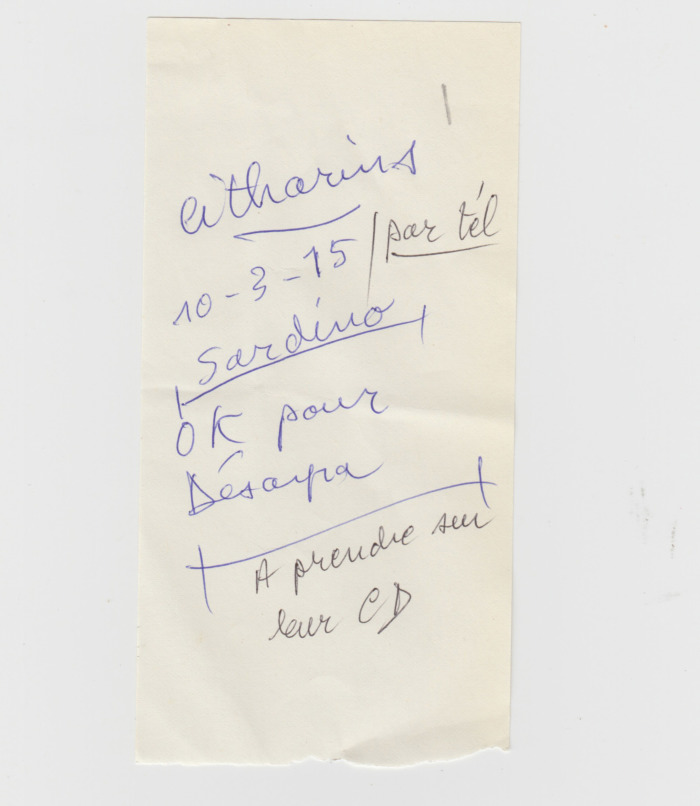 Citharins
10-3-15 / par tél
Sardino
OK pour
Désarpa
A prendre sur
leur CD